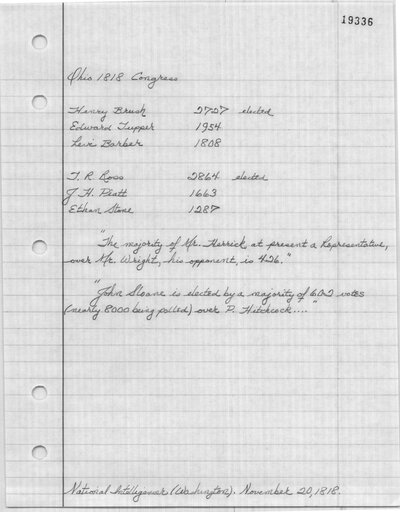 19336
Ohio 1818 Congress
Henry Brush 2727 elected
Edward Tupper 1954
Levi Barber 1808
T. R. Ross 2864 elected
J. H. Piatt 1663
Ethan Stone 1287
"The majority of Mr. Herrick, at present a Representative,
over Mr. Wright, his opponent, is 426."
"John Sloane is elected by a majority of 602 votes
(nearly 8000 being polled) over P. Hitchcock...."
National Intelligencer (Washington). November 20, 1818.